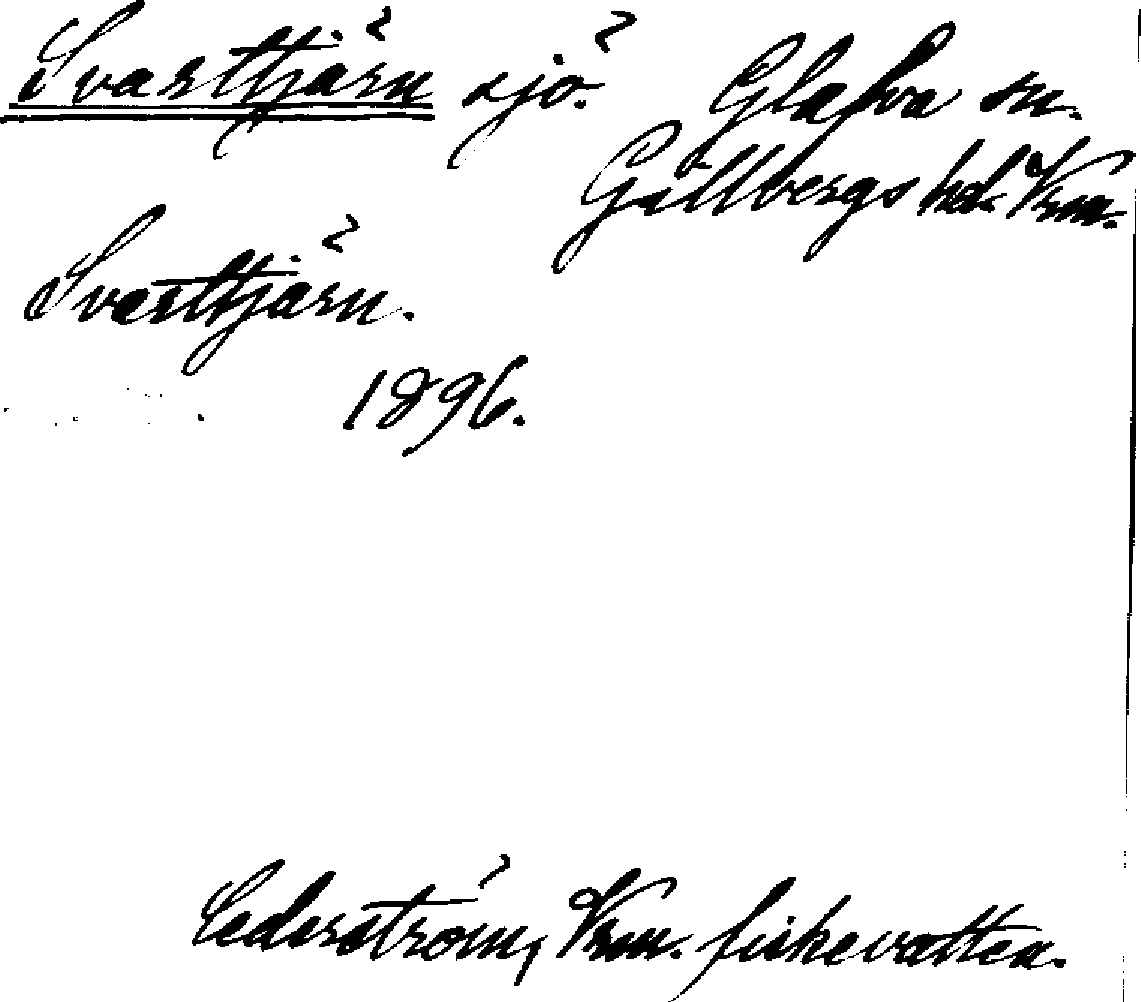 Svarttjärn sjö. Glafva sn.
Gillbergs hd. Vrm.
Svarttjärn.
1896.
Cederström, Vrm. fiskevatten.